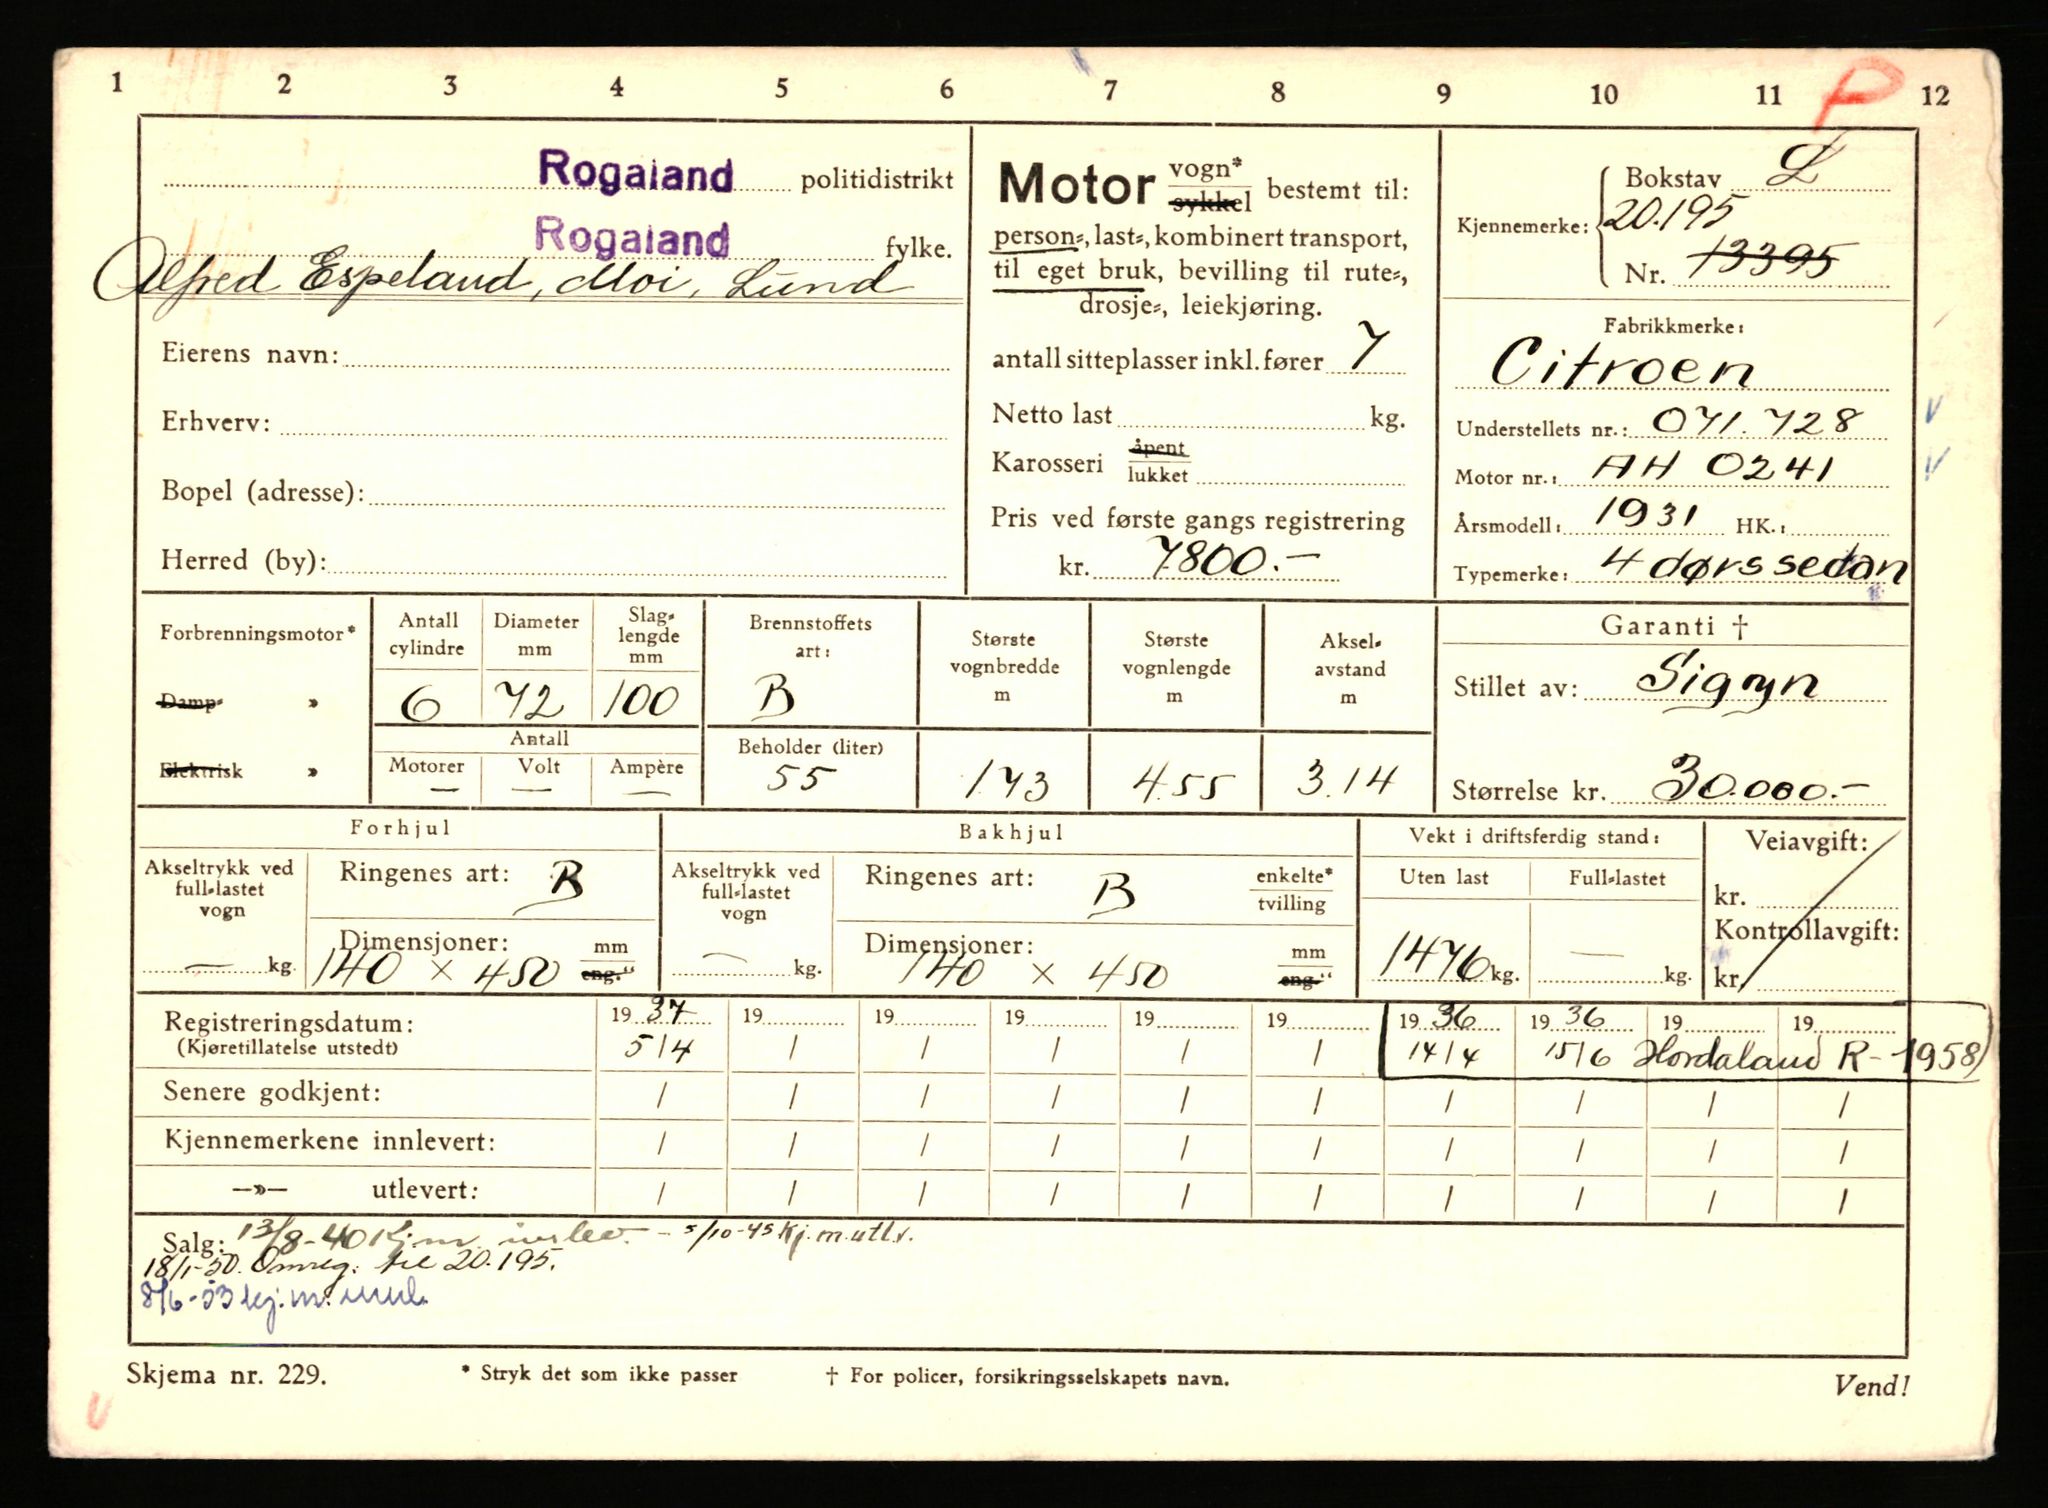 1 2 3 4 5 6 7 8 9 10 11 12
P
Rogaland politidistrikt
Rogaland fylke.
Alfred Espeland, Moi, Lund
Eierens navn:
Erhverv:
Bopel (adresse):
Herred (by):
Motor vogn* sykkel bestemt til:
person=, last=, kombinert transport,
til eget bruk, bevilling til rute=,
drosje=, leiekjøring.
antall sitteplasser inkl. fører 7
Netto last kg.
Karosseri åpent lukket
Pris ved første gangs registrering
kr. 7800.-
Kjennemerke: Bokstav L
20.195
Nr. 13395
Fabrikkmerke:
Citroen
Understellets nr.: 071.728
Motor nr.: AH 0241
Årsmodell: 1931 HK.:
Typemerke: 4 dørs sedan
Forbrenningsmotor*
Damp= »
Elektrisk »
Antall cylindre
6
Diameter mm
72
Slag=
lengde
mm
100
Antall
Motorer Volt Ampère
— — —
Brennstoffets
art:
B
Beholder (liter)
55
Største
vognbredde
m
1.73
Største
vognlengde
m
4.55
Aksel=
avstand
m
3.14
Garanti †
Stillet av: Sigyn
Størrelse kr. 30.000.-
Forhjul
Akseltrykk ved
full=lastet
vogn
— kg.
Ringenes art: B
Dimensjoner: mm eng."
140 × 450
Bakhjul
Akseltrykk ved
full=lastet
vogn
— kg.
Ringenes art: B enkelte* tvilling
Dimensjoner: mm eng."
140 × 450
Vekt i driftsferdig stand:
Uten last Full=lastet
1476 kg. — kg.
Veiavgift:
kr.
Kontrollavgift:
kr.
Registreringsdatum: 19 37 19 19 19 19 19 19 36 19 36 19 19
(Kjøretillatelse utstedt) 5/4 / / / / / 14/4 15/6 Hordaland R-1958
Senere godkjent: / / / / / / / / / /
Kjennemerkene innlevert: / / / / / / / / / /
—»— utlevert: / / / / / / / / / /
Salg: 13/8-40 Kj.m. innlev. - 5/10-45 Kj.m. utlv.
18/1-50. Omreg. til 20.195.
8/6-53 kj.m. innl.
Skjema nr. 229. * Stryk det som ikke passer † For policer, forsikringsselskapets navn. Vend!